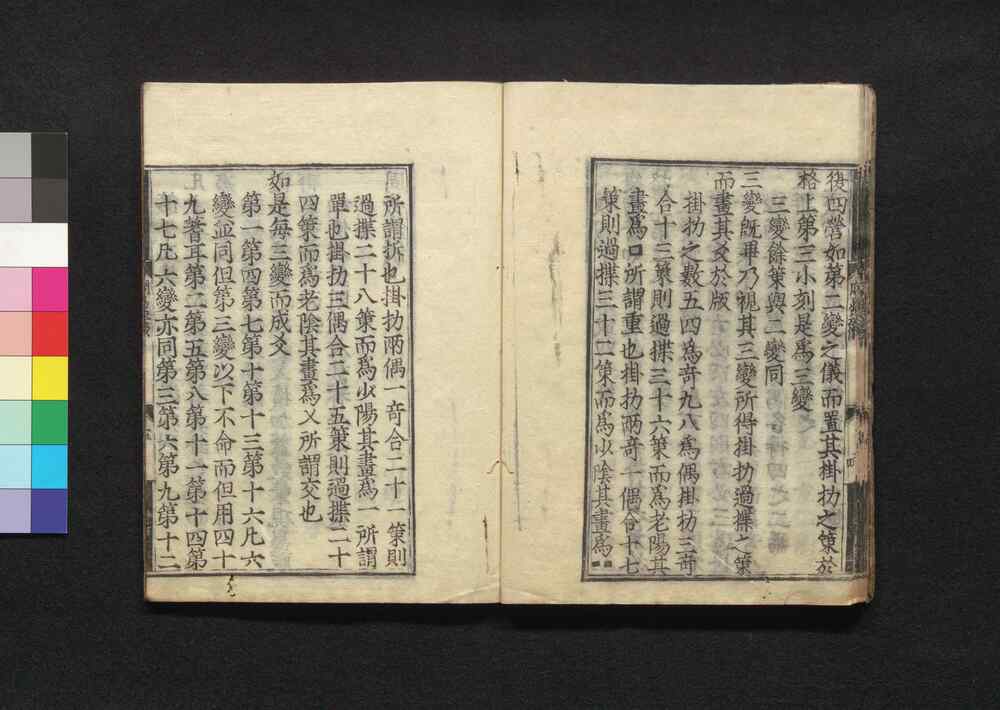 後四營如第二變之儀而置其掛扐之策於
格上第三小刻是爲三變
三變餘策與二變同
三變旣畢乃視其三變所得掛扐過揲之策
而畫其爻於版
掛扐之數五四爲奇九八爲偶掛扐三奇
合十三策則過揲三十六策而爲老陽其
畫爲口所謂重也掛扐兩奇一偶合十七
策則過揲三十二策而爲少陰其畫爲
所謂拆也掛扐兩偶一奇合二十一策則
過揲二十八策而爲少陽其畫爲一所謂
單也掛扐三偶合二十五策則過揲二十
四策而爲老陰其畫爲乂所謂交也
如是每三變而成爻
第一第四第七第十第十三第十六凡六
變並同但第三變以下不命而但用四十
九蓍耳第二第五第八第十一第十四第
十七凡六變亦同第三第六第九第十二